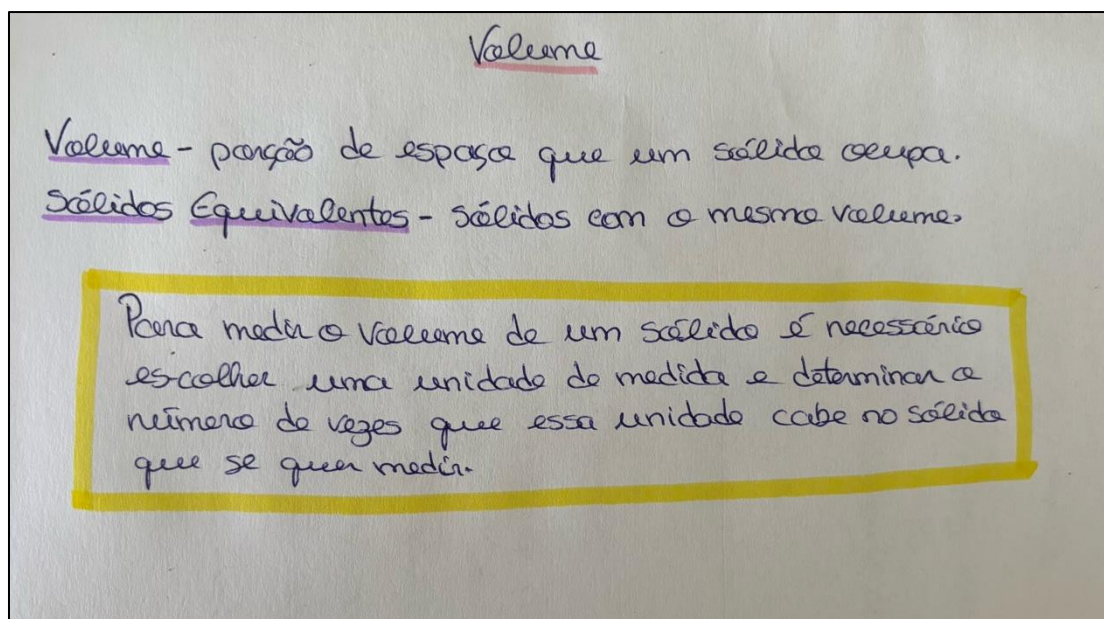 Volume
Volume - porção de espaço que um sólido ocupa.
Sólidos Equivalentes - sólidos com o mesmo volume.
Para medir o volume de um sólido é necessário
escolher uma unidade de medida e determinar o
número de vezes que essa unidade cabe no sólido
que se quer medir.